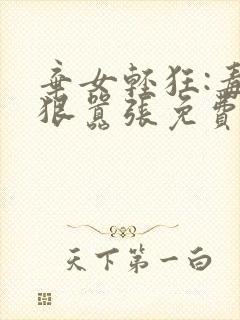 棄女輕狂:毒
狠囂張免費
天下第一白